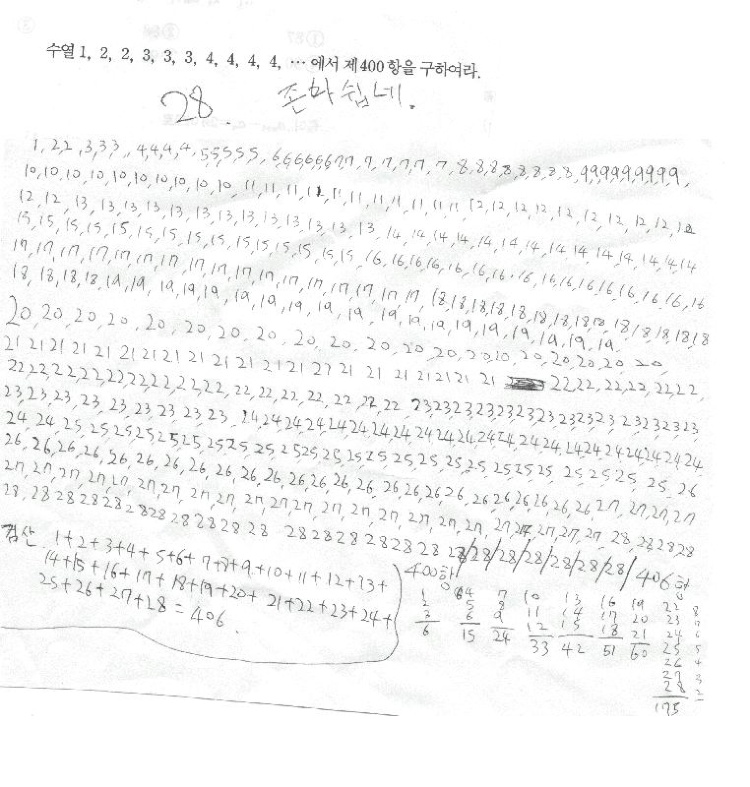 수열 1, 2, 2, 3, 3, 3, 4, 4, 4, 4, ··· 에서 제400항을 구하여라.
28. 존나 쉽네.
1, 2,2 ,3,3,3 , 4,4,4,4, 5,5,5,5,5, 6,6,6,6,6,6,7,7, 7, 7, 7, 7, 7, 8,8,8,8,8,8,8,8,9,9,9,9,9,9,9,9,9,
10,10,10,10,10,10,10,10,10,10, 11,11,11,11,11,11,11,11,11,11,11, 12,12,12,12,12,12,12,12,12,12
12,12,13,13,13,13,13,13,13,13,13,13,13,13,13,14,14,14,14,14,14,14,14,14,14,14,14,14,14
15,15,15,15,15,15,15,15,15,15,15,15,15,15,15,16,16,16,16,16,16,16,16,16,16,16,16,16,16,16,16
17,17,17,17,17,17,17,17,17,17,17,17,17,17,17,17,17,18,18,18,18,18,18,18,18,18,18,18,18,18,18
18,18,18,18,19,19,19,19,19,19,19,19,19,19,19,19,19,19,19,19,19,19,19,
20,20,20,20,20,20,20,20,20,20,20,20,20,20,20,20,20,20,20,20,
21 21 21 21 21 21 21 21 21 21 21 21 21 21 21 21 21 21 21 21 21 22,22,22,22,22,22,
22,22,22,22,22,22,22,22,22,22,22,22,22,22,22,22 23,23,23,23,23,23,23,23,23,23,23,23,23
23,23,23,23,23,23,23,23,23,23,24,24,24,24,24,24,24,24,24,24,24,24,24,24,24,24,24,24,24,24,24,24
24,24,25,25,25,25,25,25,25,25,25,25,25,25,25,25,25,25,25,25,25,25,25,25,25,25,25,26
26,26,26,26,26,26,26,26,26,26,26,26,26,26,26,26,26,26,26,26,26,26,26,26,26,27,27,27,27
27,27,27,27,27,27,27,27,27,27,27,27,27,27,27,27,27,27,27,27,27,27,27,28,28,28,28
28,28 28 28 28 28 28 28 28 28 28 28 28 28 28 28 28 28/28/28/28/28/28/28/ 406항
400항
검산 1+2+3+4+5+6+7+8+9+10+11+12+13+
14+15+16+17+18+19+20+ 21+22+23+24+
25+26+27+28 = 406.
1 4 7 10 13 16 19 22 8
2 5 8 11 14 17 20 23 7
3 6 9 12 15 18 21 24 6
6 15 24 33 42 51 60 25 5
26 4
27 3
28 2
175